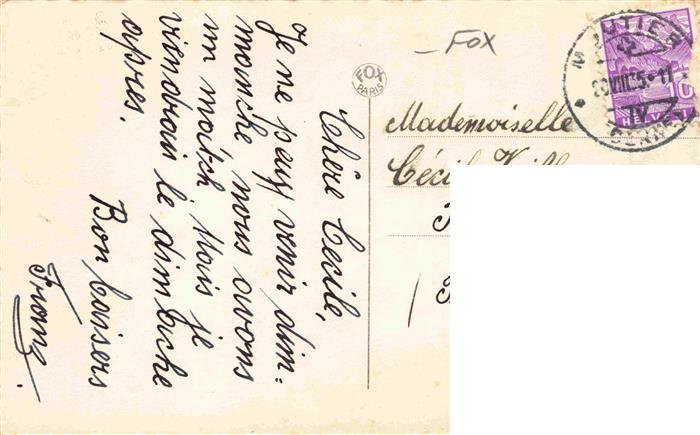 Chère Cecile,
Je ne peux venir dim=
manche nous avons
un match Mais je
viendrais le dimanche
apres.
Bon baisers
Franz.
FOX
PARIS
– FOX
Mademoiselle
Céci
MOUTIER
10
HELVETIA